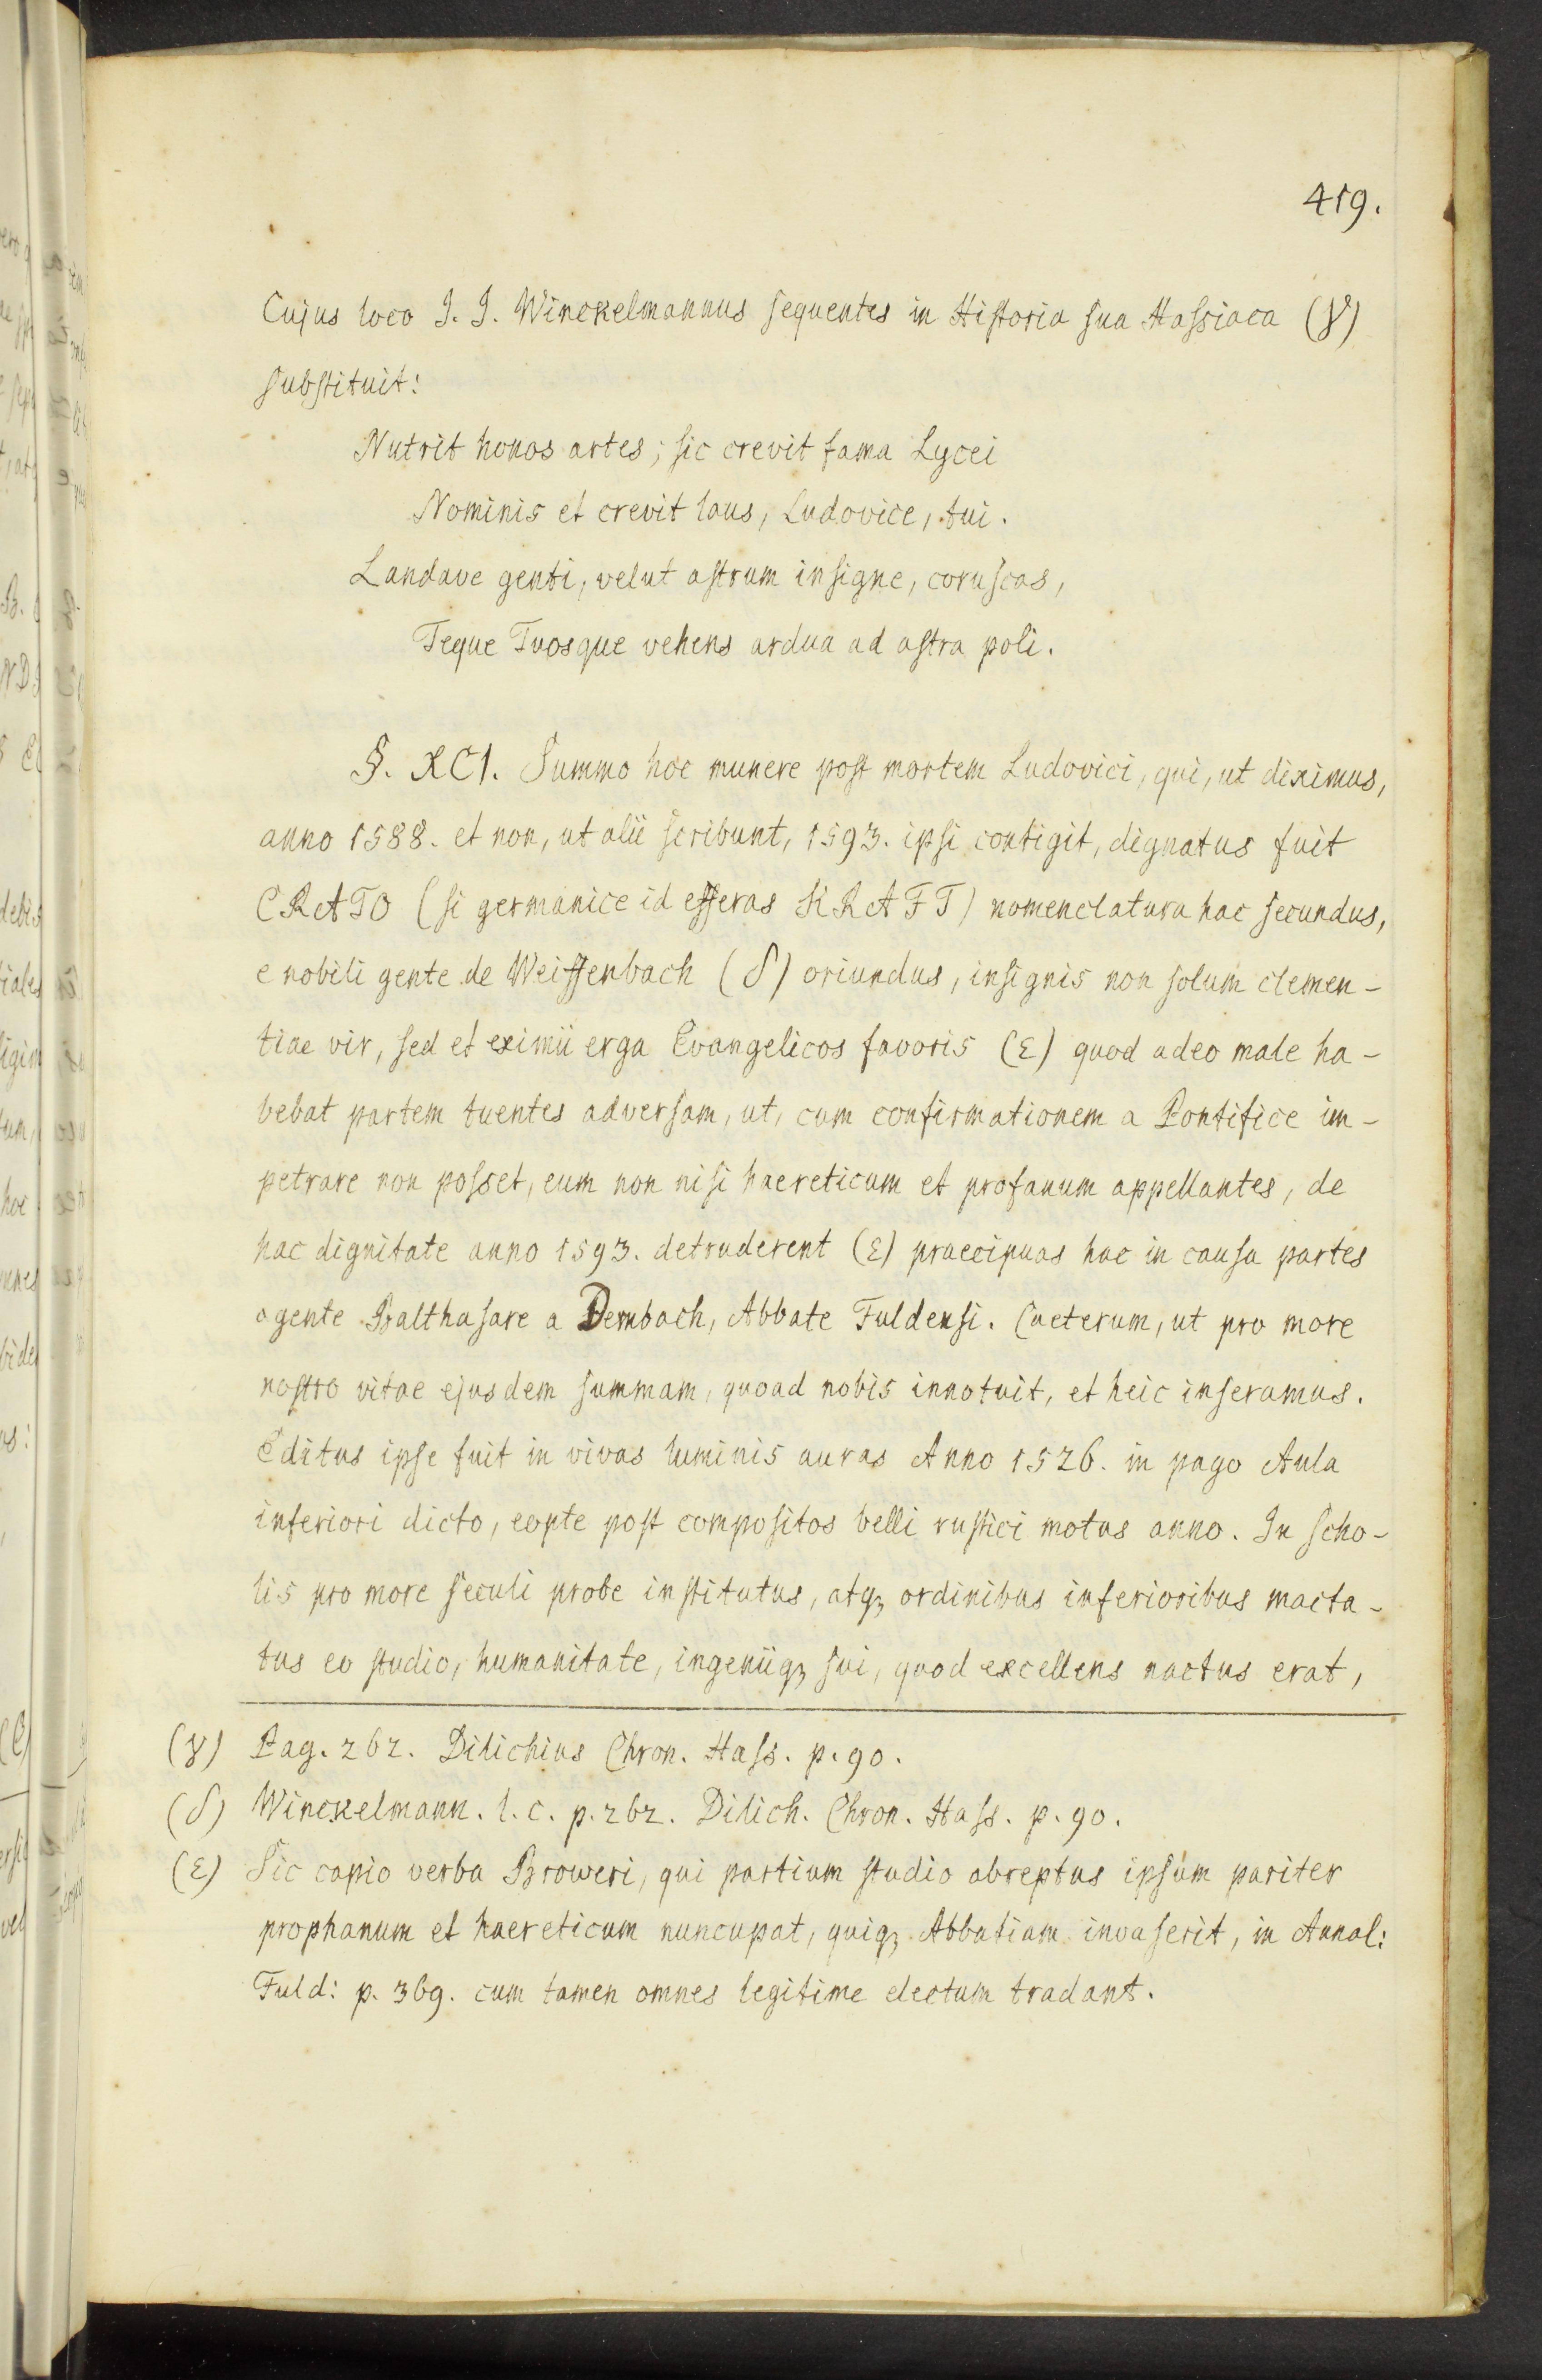 419.
Cujus loco J. J. Winckelmannus sequentes in Historia sua Hassiaca (γ)
substituit:
Nutrit honos artes; sic crevit fama Lycei
Nominis et crevit laus, Ludovice, tui.
Landave genti, velut astrum insigne, coruscas,
Teque Tuosque vehens ardua ad astra poli.
§. XCI. Summo hoc munere post mortem Ludovici, qui, ut diximus,
anno 1588. et non, ut alii scribunt, 1593. ipsi contigit, dignatus fuit
CRATO (si germanice id efferas KRAFT) nomenclatura hac secundus,
e nobili gente de Weiffenbach (δ) oriundus, insignis non solum clemen-
tiae vir, sed et eximii erga Evangelicos favoris (ε) quod adeo male ha-
bebat partem tuentes adversam, ut, cum confirmationem a Pontifice im-
petrare non posset, eum non nisi haereticum et profanum appellantes, de
hac dignitate anno 1593. detruderent (ε) praecipuas hac in causa partes
agente Balthasare a Dembach, Abbate Fuldensi. Caeterum, ut pro more
nostro vitae ejusdem summam, quoad nobis innotuit, et heic inseramus.
Editus ipse fuit in vivas luminis auras Anno 1526. in pago Aula
inferiori dicto, eopte post compositos belli rustici motus anno. In scho-
lis pro more seculi probe institutus, atqꝫ ordinibus inferioribus macta-
tus eo studio, humanitate, ingeniiqꝫ sui, quod excellens nactus erat,
(γ) Pag. 262. Dilichius Chron. Hass. p. 90.
(δ) Winckelmann. l. c. p. 262. Dilich. Chron. Hass. p. 90.
(ε) Sic capio verba Broweri, qui partium studio abreptus ipsum pariter
prophanum et haereticum nuncupat, quiqꝫ Abbatiam invaserit, in Annal:
Fuld: p. 369. cum tamen omnes legitime electum tradant.